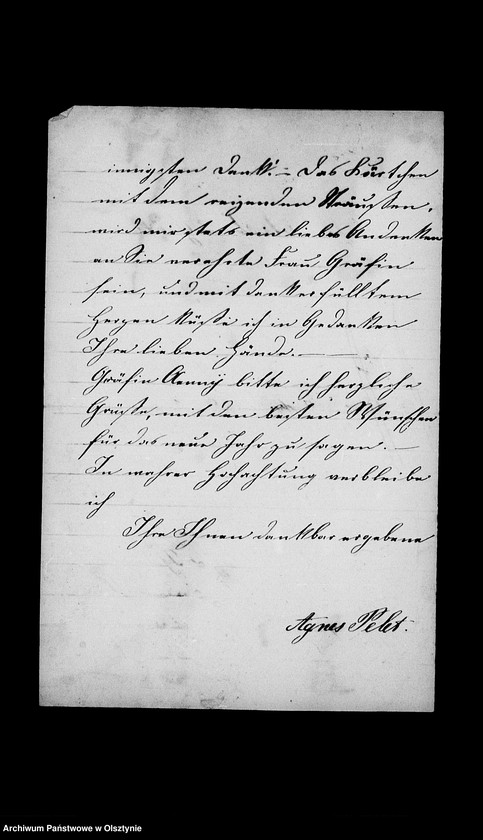 innigsten Dank! – Das Kärtchen
mit dem reizenden Sträußen,
wird mir stets ein liebes Andenken
an Sie verehrte Frau Gräfin
sein, und mit dankerfülltem
Herzen küsse ich in Gedanken
Ihre lieben Hände. –
Gräfin Aenny bitte ich herzliche
Grüße, mit den besten Wünschen
für das neue Jahr zu sagen. –
In wahrer Hochachtung verbleibe
ich
Ihre Ihnen dankbar ergebene
Agnes Pelet.
Archiwum Państwowe w Olsztynie